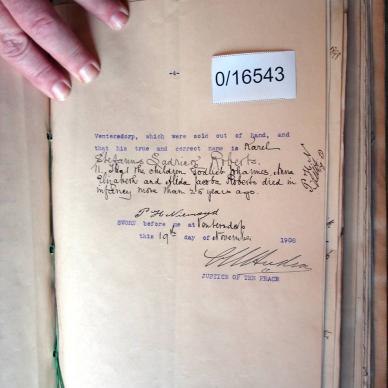 -4-
0/16543
Ventersdorp, which were sold out of hand, and
that his true and correct name is Karel
Stefanus Roberts.
11. That the children Johannes Anna
Elizabeth and Jacoba Roberts died in
infancy more than 25 years ago.
SWORN before me at Ventersdorp
this 19th day of November 1908
JUSTICE OF THE PEACE